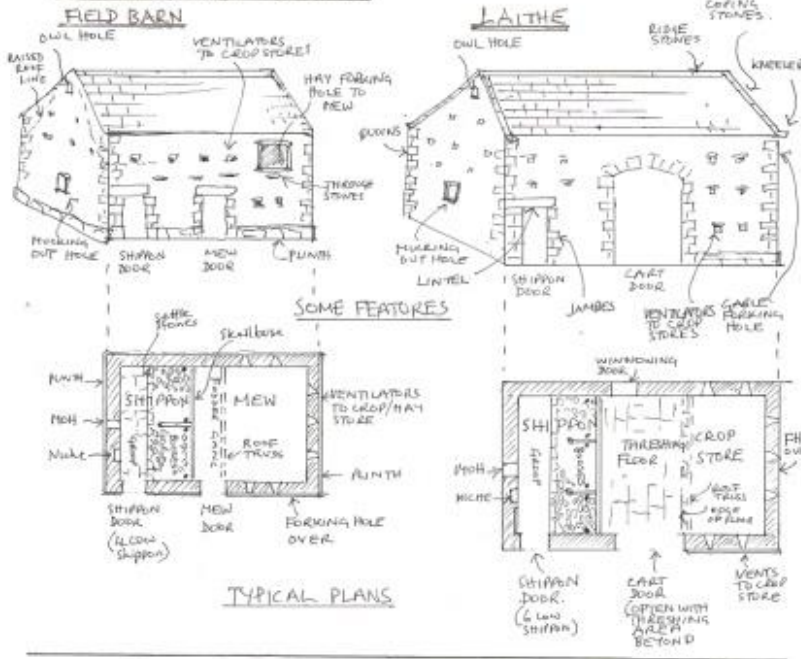 FIELD BARN
OWL HOLE
RAISED
ROOF
LINE
VENTILATORS
TO CROP STORES
HAY FORKING
HOLE TO
MEW
THROUGH
STONES
MUCKING
OUT HOLE
SHIPPON
DOOR
MEW
DOOR
PLINTH
LAITHE
OWL HOLE
RIDGE
STONES
COPING
STONES.
KNEELER
QUOINS
MUCKING
OUT HOLE
LINTEL
SHIPPON
DOOR
JAMBES
CART
DOOR
VENTILATORS
TO CROP
STORES
GABLE
FORKING
HOLE
SOME FEATURES
STONES
Skelbuse
PLINTH
MOH
Niche
SHIPPON
GROOP
MEW
ROOF
TRUSS
VENTILATORS
TO CROP/HAY
STORE
PLINTH
SHIPPON
DOOR
(4 COW
Shippon)
MEW
DOOR
FORKING HOLE
OVER
WINNOWING
DOOR
SHIPPON
GROOP
THRESHING
FLOOR
CROP
STORE
FH
OV
MOH
NICHE
ROOF
TRUSS
EDGE
OF
SHIPPON
DOOR.
(6 COW
SHIPPON)
CART
DOOR
(OFTEN WITH
THRESHING
AREA
BEYOND
VENTS
TO CROP
STORE
TYPICAL PLANS